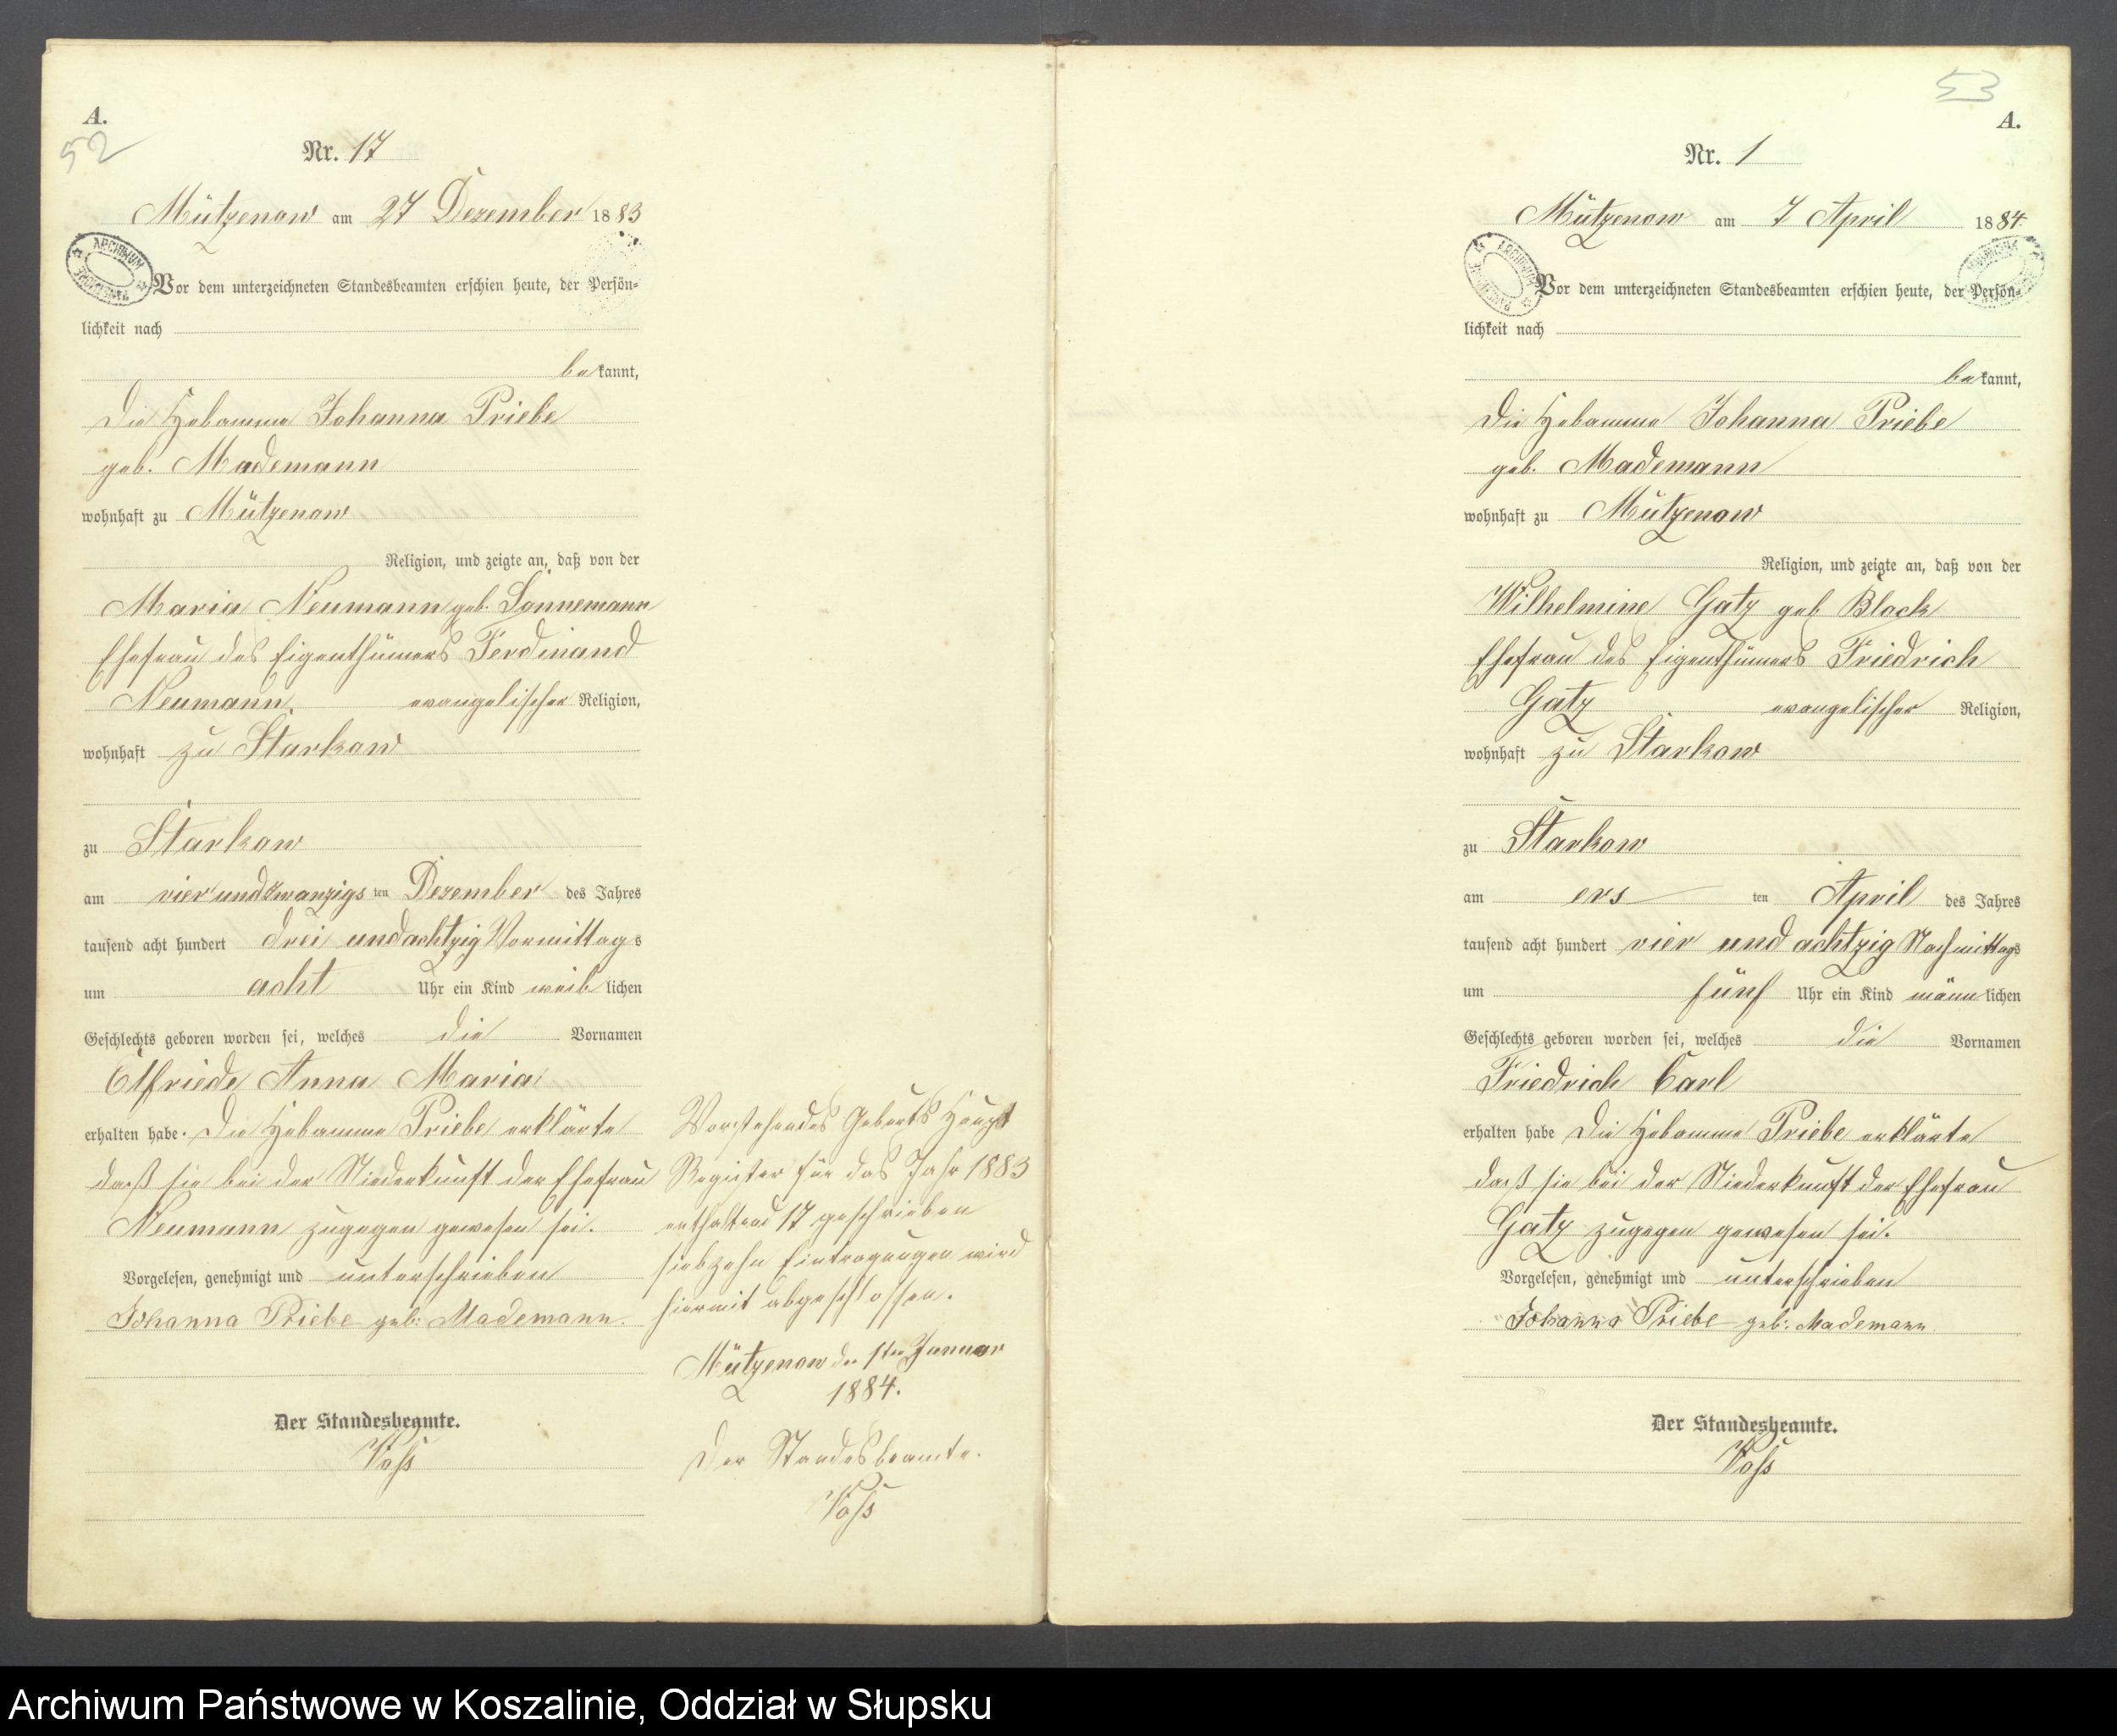 A.
52
Nr. 17
Mützenow am 27 Dezember 1883
ARCHIWUM
Vor dem unterzeichneten Standesbeamten erschien heute, der Persön-
lichkeit nach
bekannt,
die Hebamme Johanna Priebe
geb. Mademann
wohnhaft zu Mützenow
Religion, und zeigte an, daß von der
Maria Neumann geb. Sonnemann
Ehefrau des Eigenthümers Ferdinand
Neumann, evangelischer Religion,
wohnhaft zu Starkow
zu Starkow
am vierundzwanzigsten Dezember des Jahres
tausend acht hundert drei und achtzig Vormittags
um acht Uhr ein Kind weiblichen
Geschlechts geboren worden sei, welches die Vornamen
Elfriede Anna Maria
erhalten habe. Die Hebamme Priebe erklärte
daß sie bei der Niederkunft der Ehefrau
Neumann zugegen gewesen sei.
Vorgelesen, genehmigt und unterschrieben
Johanna Priebe geb: Mademann.
Der Standesbeamte.
Voß
Vorstehendes Geburts Haupt
Register für das Jahr 1883
enthaltend 17 geschrieben
siebzehn Eintragungen wird
hiermit abgeschlossen.
Mützenow den 1ten Januar
1884.
Der Standesbeamte.
Voß
53
A.
Nr. 1
Mützenow am 7 April 1884
ARCHIWUM
Vor dem unterzeichneten Standesbeamten erschien heute, der Persön-
lichkeit nach
bekannt,
die Hebamme Johanna Priebe
geb. Mademann
wohnhaft zu Mützenow
Religion, und zeigte an, daß von der
Wilhelmine Gatz geb Block
Ehefrau des Eigenthümers Friedrich
Gatz evangelischer Religion,
wohnhaft zu Starkow
zu Starkow
am ersten April des Jahres
tausend acht hundert vier und achtzig Nachmittags
um fünf Uhr ein Kind männlichen
Geschlechts geboren worden sei, welches die Vornamen
Friedrich Carl
erhalten habe Die Hebamme Priebe erklärte
daß sie bei der Niederkunft der Ehefrau
Gatz zugegen gewesen sei.
Vorgelesen, genehmigt und unterschrieben
Johanna Priebe geb: Mademann.
Der Standesbeamte.
Voß
Archiwum Państwowe w Koszalinie, Oddział w Słupsku